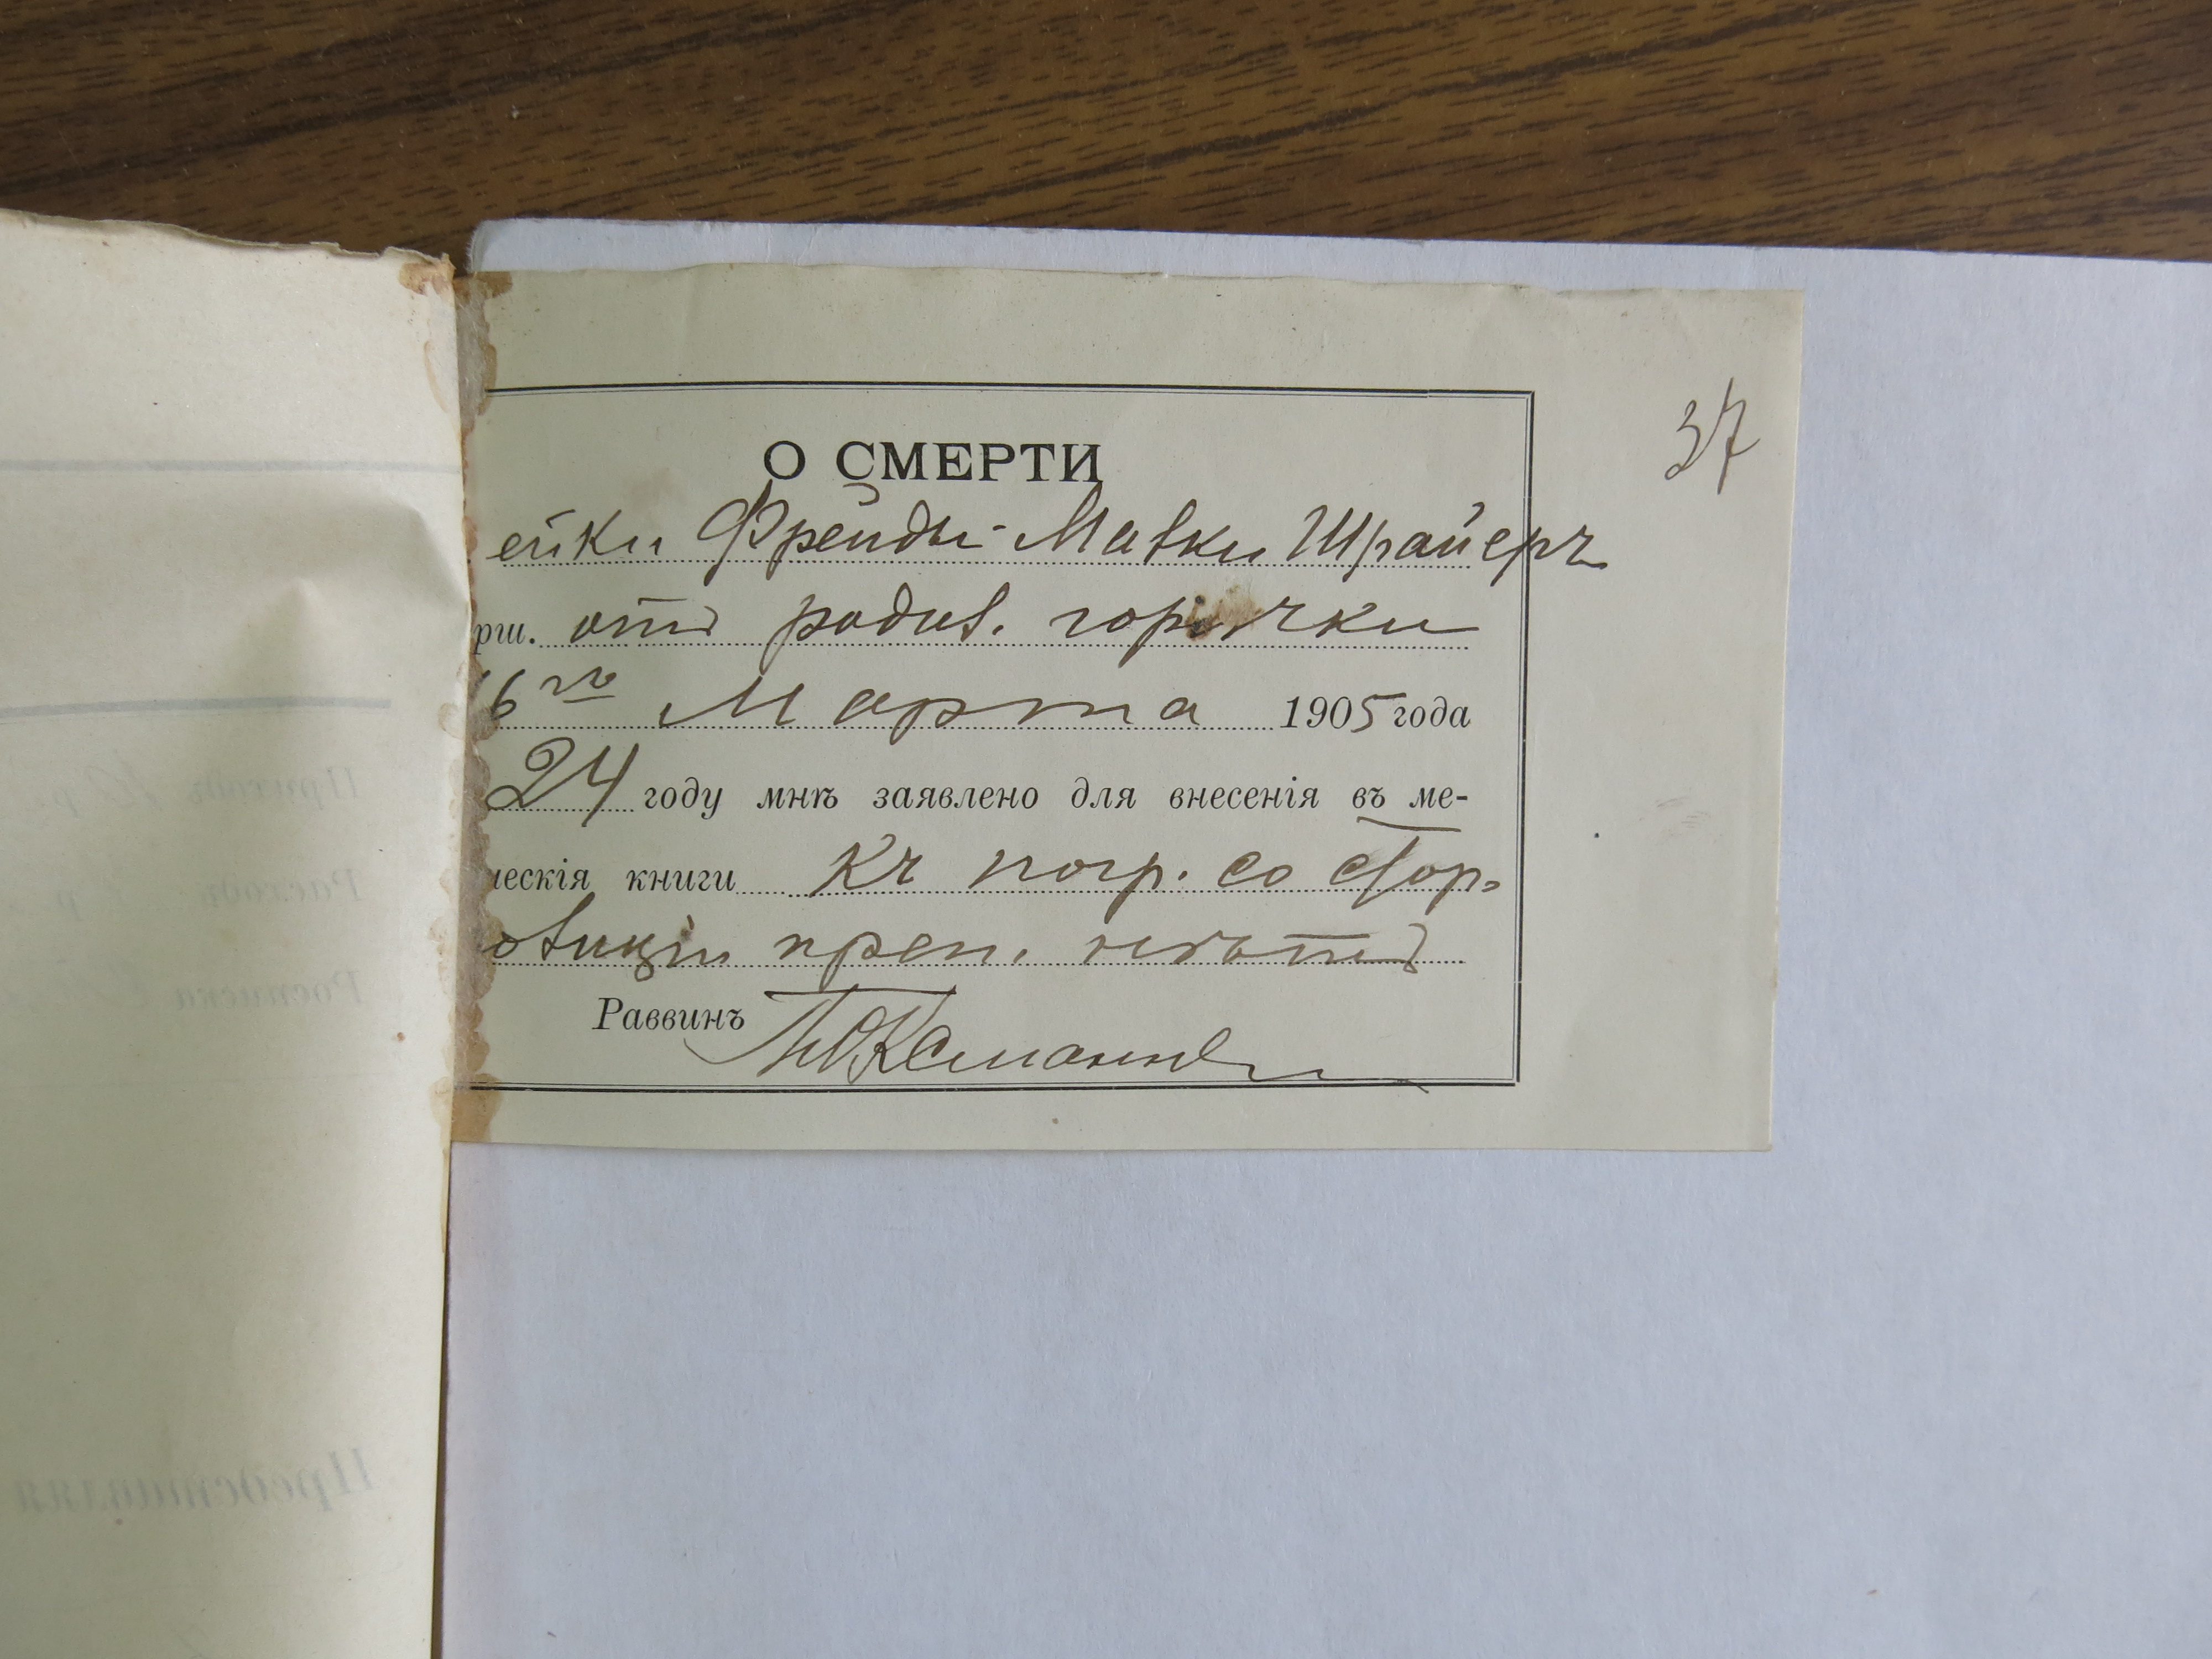 37
О СМЕРТИ
ейки Фрейды-Малки Шрайеръ
рш. отъ родил. горячки
6го Марта 1905 года
24 году мнѣ заявлено для внесенія въ ме-
ческія книги Къ погр. со стор.
овицiи преп. нѣтъ
Раввинъ
Приходъ
Расходъ
Росписка
Представляя